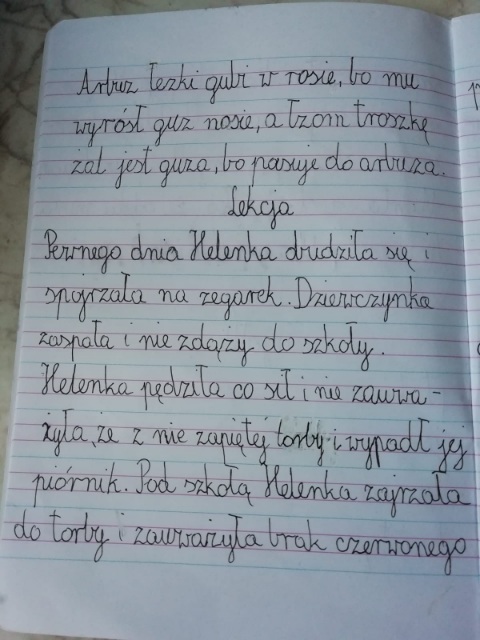 Arbuz łezki gubi w rosie, bo mu
wyrósł guz nosie, a łzom troszkę
żal jest guza, bo pasuje do arbuza.
Lekcja
Pewnego dnia Helenka drudziła się i
spojrzała na zegarek. Dziewczynka
zaspała i nie zdąży do szkoły.
Helenka pędziła co sił i nie zauwa-
żyła, że z nie zapiętej torby i wypadł jej
piórnik. Pod szkołą Helenka zajrzała
do torby i zauważyła brak czerwonego